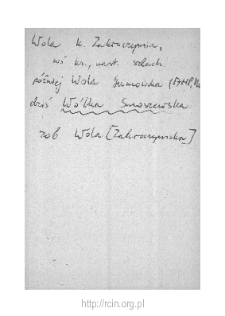 Wola k. Zakroczymia,
wś kr., nast. szlach.
później Wola Smoszewska
dziś Wólka Smoszewska
zob Wola [Zakroczymska]
http://rcin.org.pl